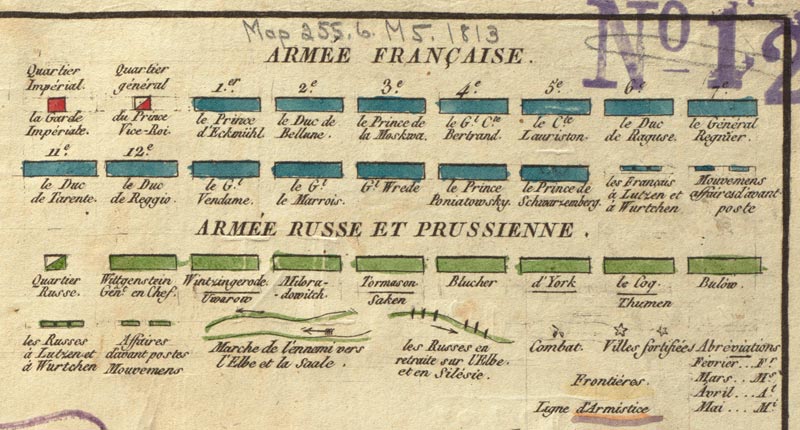 Map 255.b. M5. 1813
No 12
ARMÉE FRANÇAISE.
Quartier Impérial. la Garde Impériale.
Quartier général du Prince Vice-Roi.
1.er le Prince d'Eckmühl.
2.e le Duc de Bellune.
3.e le Prince de la Moskwa.
4.e le G.l C.te Bertrand.
5.e le C.te Lauriston.
6.e le Duc de Raguse.
7.e le Général Regnier.
11.e le Duc de Tarente.
12.e le Duc de Reggio.
le G.l Vendame.
le G.l le Marrois.
G.l Wrede
le Prince Poniatowsky.
le Prince de Schwarzemberg.
les Français à Lutzen et à Wurtchen
Mouvemens affaires d'avant-poste
ARMÉE RUSSE ET PRUSSIENNE.
Quartier Russe.
Wittgenstein Gén.l en Chef.
Wintzingerode. Uwarow
Milora-dowitch.
Tormason Saken
Blucher
d'York
le Coq. Thumen
Bulöw.
les Russes à Lutzen et à Wurtchen
Affaires d'avant postes Mouvemens
Marche de l'ennemi vers l'Elbe et la Saale.
les Russes en retraite sur l'Elbe. et en Silésie.
Combat.
Villes fortifiées
Frontières.
Ligne d'Armistice
Abréviations
Février... F.r
Mars... M.s
Avril... A.l
Mai ... M.i